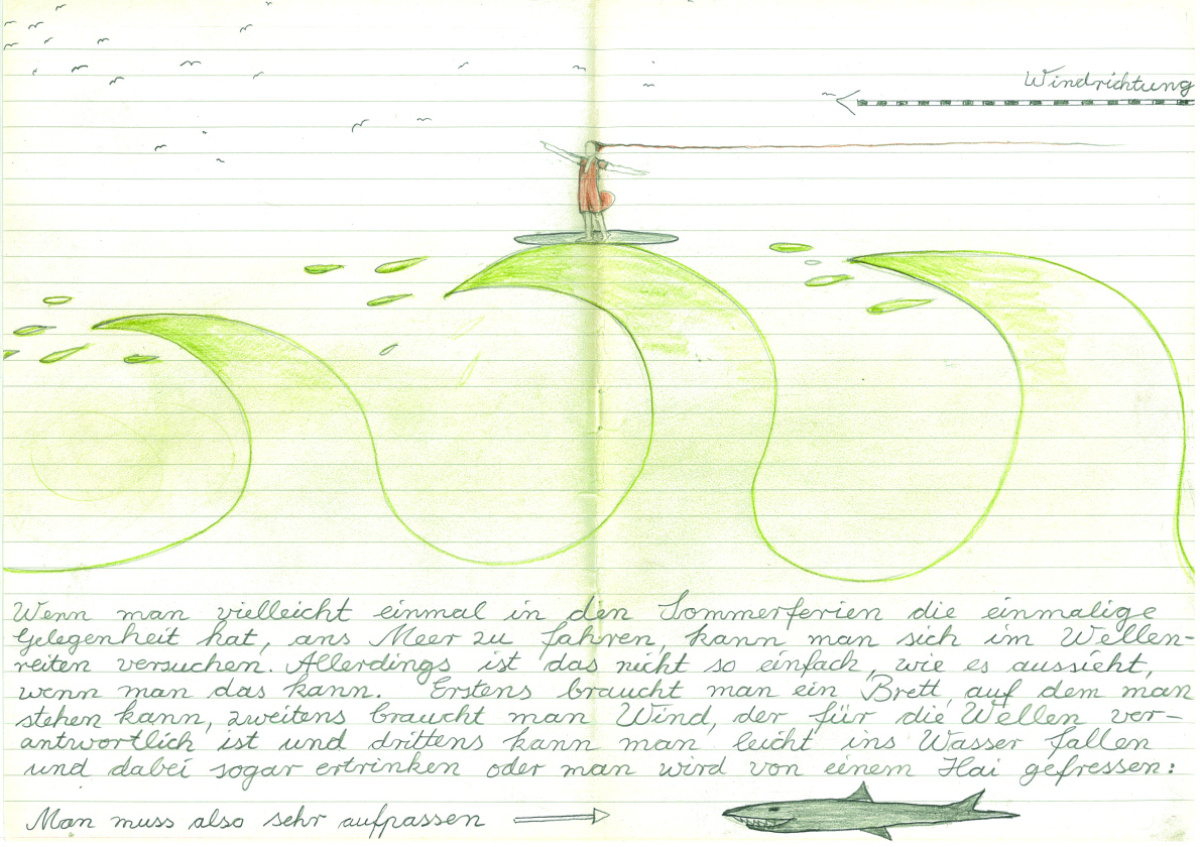 Windrichtung
Wenn man vielleicht einmal in den Sommerferien die einmalige
Gelegenheit hat, ans Meer zu fahren, kann man sich im Wellen-
reiten versuchen. Allerdings ist das nicht so einfach, wie es aussieht,
wenn man das kann. Erstens braucht man ein Brett, auf dem man
stehen kann, zweitens braucht man Wind, der für die Wellen ver-
antwortlich ist und drittens kann man leicht ins Wasser fallen
und dabei sogar ertrinken oder man wird von einem Hai gefressen:
Man muss also sehr aufpassen